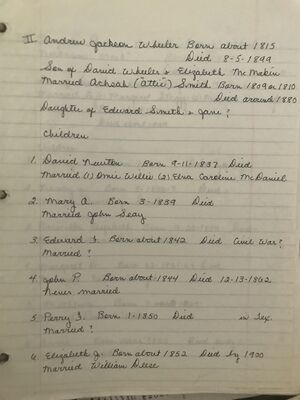 II Andrew Jackson Wheeler Born about 1815
Died 8-5-1899
Son of David Wheeler & Elizabeth McMekin
Married Achsah ("Attie") Smith Born 1809 or 1810
Died around 1880
Daughter of Edward Smith & Jane ?
Children
1. David Newton Born 9-11-1837 Died
Married (1) Omie Willis (2) Edna Caroline McDaniel
2. Mary A. Born 3-1839 Died
Married John Seay
3. Edward S. Born about 1842 Died Civil War?
Married ?
4. John P. Born about 1844 Died 12-13-1862
Never married
5 Perry S. Born 1-1850 Died in Tex.
Married ?
6. Elizabeth J. Born about 1852 Died by 1900
Married William Deese